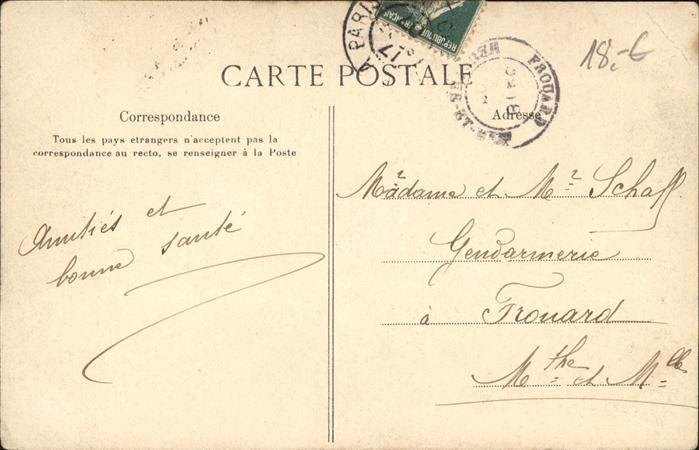 18.-€
A PARIS
17
REPUBLIQUE FRANÇAISE
FROUARD
CARTE POSTALE
Correspondance
Tous les pays étrangers n'acceptent pas la
correspondance au recto, se renseigner à la Poste
Amitiés et
bonne santé
Adresse
Madame et Mr Schaff
Gendarmerie
à Frouard
Mthe et Mlle